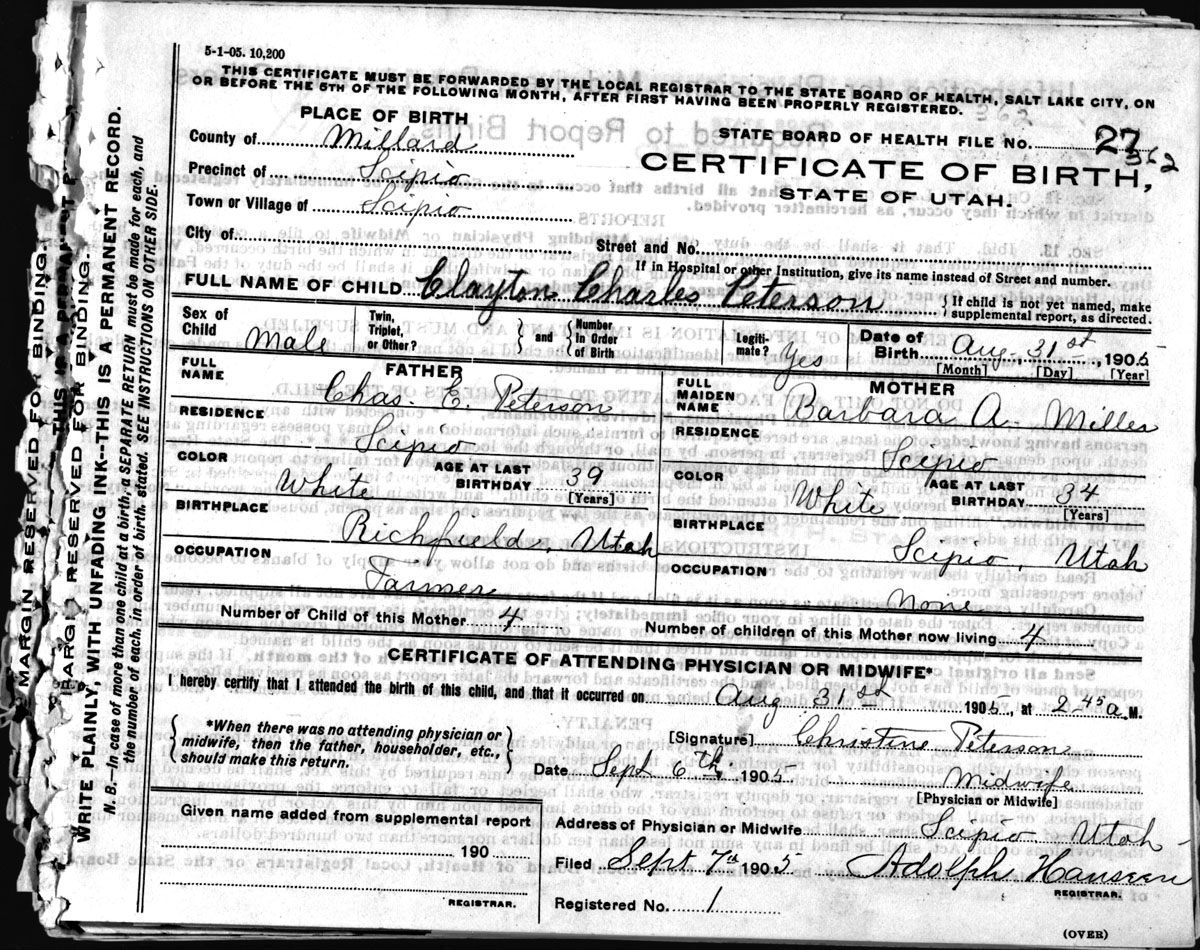 5-1-05. 10,200
THIS CERTIFICATE MUST BE FORWARDED BY THE LOCAL REGISTRAR TO THE STATE BOARD OF HEALTH, SALT LAKE CITY, ON
OR BEFORE THE 5TH OF THE FOLLOWING MONTH, AFTER FIRST HAVING BEEN PROPERLY REGISTERED.
362
PLACE OF BIRTH
STATE BOARD OF HEALTH FILE No. 27
362
County of Millard
CERTIFICATE OF BIRTH,
Precinct of Scipio
STATE OF UTAH.
Town or Village of Scipio
City of
Street and No.
If in Hospital or other Institution, give its name instead of Street and number.
FULL NAME OF CHILD Clayton Charles Peterson { If child is not yet named, make supplemental report, as directed.
Sex of Child Male Twin, Triplet, or Other? } and { Number in Order of Birth Legitimate? Yes Date of Birth Aug. 31st, 1905
[Month] [Day] [Year]
FATHER
FULL NAME Chas. E. Peterson
RESIDENCE Scipio
COLOR White AGE AT LAST BIRTHDAY 39
[Years]
BIRTHPLACE Richfield, Utah
OCCUPATION Farmer
MOTHER
FULL MAIDEN NAME Barbara A. Miller
RESIDENCE Scipio
COLOR White AGE AT LAST BIRTHDAY 34
[Years]
BIRTHPLACE Scipio, Utah
OCCUPATION None
Number of Child of this Mother 4 Number of children of this Mother now living 4
CERTIFICATE OF ATTENDING PHYSICIAN OR MIDWIFE*
I hereby certify that I attended the birth of this child, and that it occurred on Aug 31st 1905, at 2 45 a M.
{ *When there was no attending physician or midwife, then the father, householder, etc., should make this return. }
[Signature] Christine Peterson
Date Sept 6th, 1905 Midwife
[Physician or Midwife]
Given name added from supplemental report
190
REGISTRAR.
Address of Physician or Midwife Scipio Utah
Filed Sept 7th 1905 Adolph Hanseen
REGISTRAR.
Registered No. 1
(OVER)
MARGIN RESERVED FOR BINDING.
MARGIN RESERVED FOR BINDING.
WRITE PLAINLY, WITH UNFADING INK---THIS IS A PERMANENT RECORD.
N. B.—In case of more than one child at a birth, a SEPARATE RETURN must be made for each, and
the number of each, in order of birth, stated. SEE INSTRUCTIONS ON OTHER SIDE.